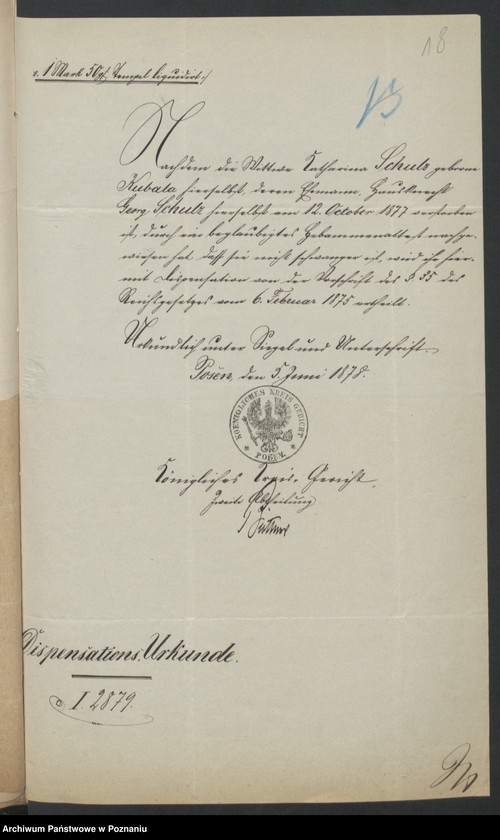 18
1 Mark 50 Pf. Stempel liquidirt
Nachdem die Wittwe Katharina Schulz geborne
Kubala hierselbst, deren Ehemann, Hausknecht
Georg Schulz hierselbst am 12. October 1877 verstorben
ist, durch ein beglaubigtes Hebammenattest nachge-
wiesen hat, daß sie nicht schwanger ist, wird ihr hier-
mit Dispensation von der Vorschrift des § 35 des
Reichsgesetzes vom 6. Februar 1875 ertheilt.
Urkundlich unter Siegel und Unterschrift.
Posen, den 5. Juni 1878.
KOENIGLICHES KREIS GERICHT
POSEN
Königliches Kreis-Gericht.
Zweite Abtheilung
Dispensations-Urkunde.
I. 2879.
Archiwum Państwowe w Poznaniu